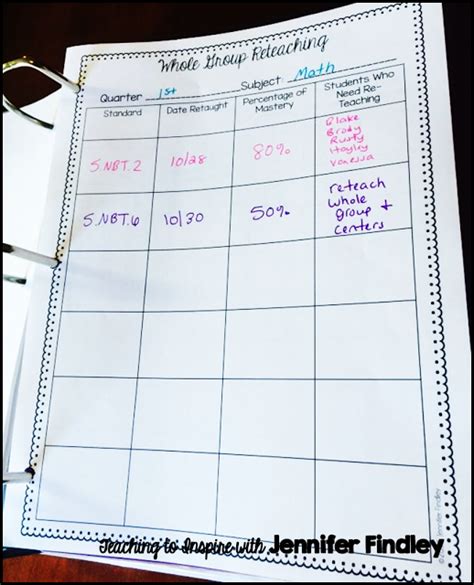 Whole Group Reteaching
Quarter 1st Subject Math
Standard Date Retaught Percentage of Mastery Students Who Need Re-Teaching
5.NBT.2 10/28 80% Blake
Brody
Rusty
Hayley
Vanessa
5.NBT.6 10/30 50% reteach
whole
group +
centers
© Jennifer Findley
Teaching to Inspire with Jennifer Findley